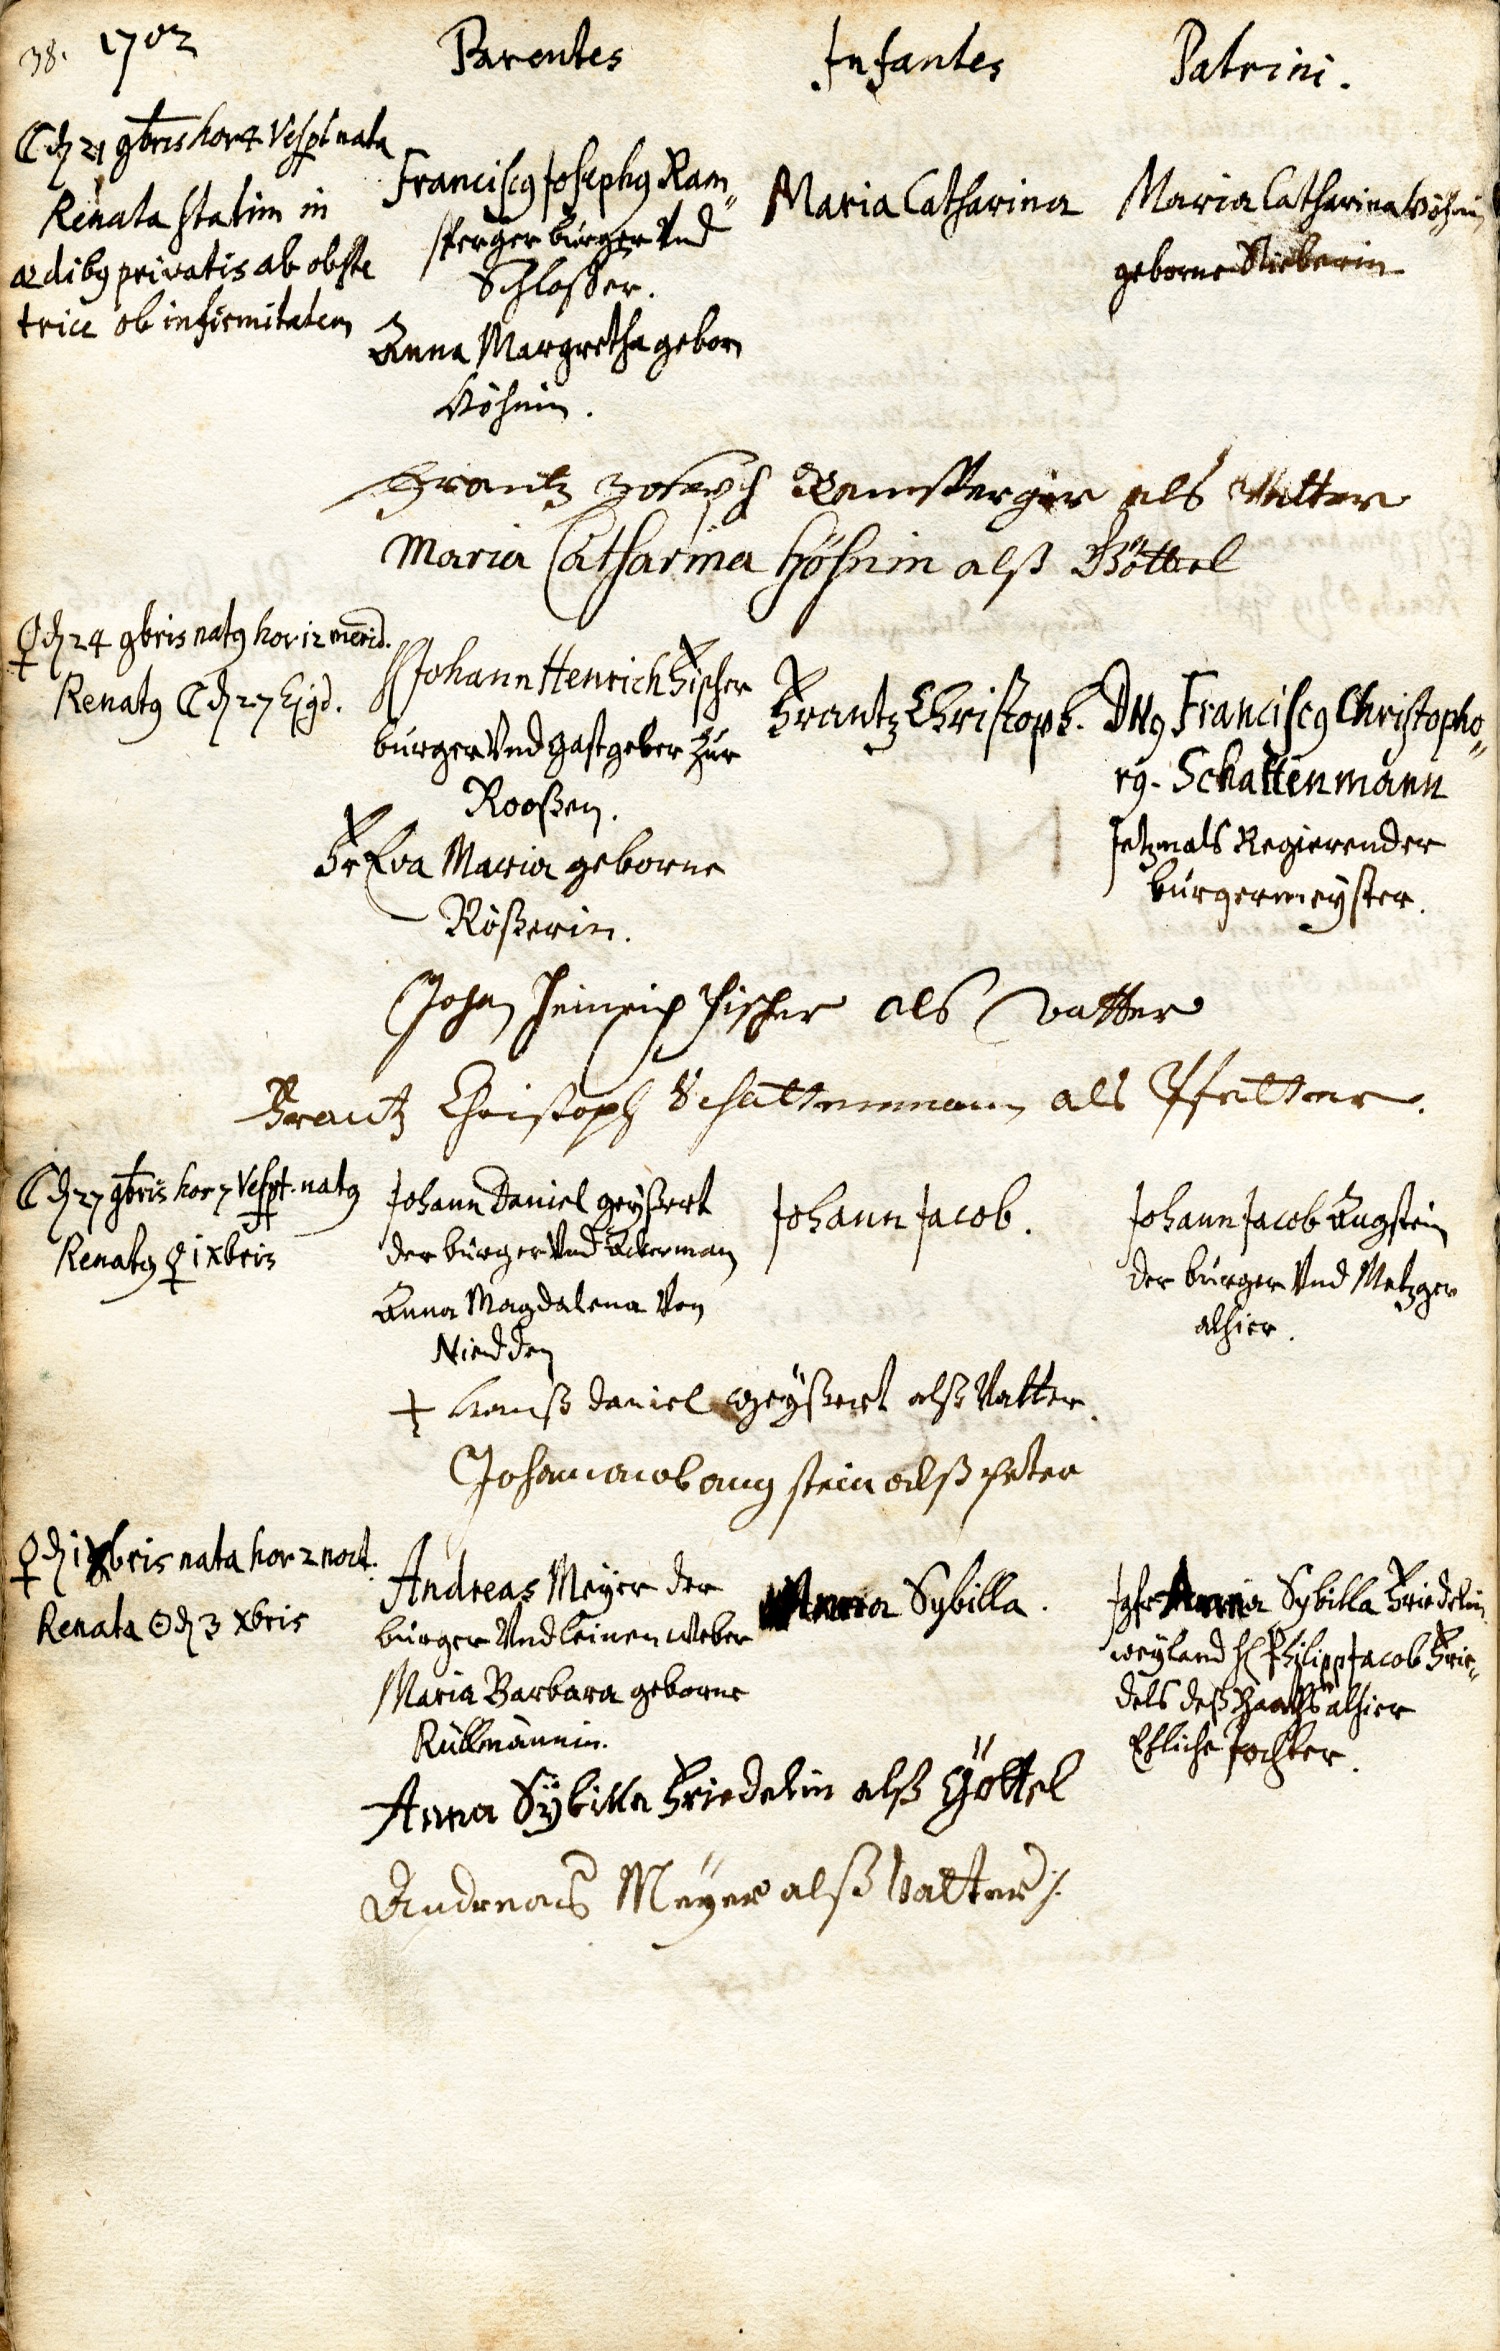 38. 1702 Parentes Infantes Patrini.
☾ d. 21 9bris hor 4 Vesp̄t nata
Renata statim in
ædibꝰ privatis ab obste
trice ob infirmitatem
Franciscꝰ Josephꝰ Ram„
sperger burger Vnd
Schlosser.
Anna Margretha geborn
Höhnin.
Maria Catharina
Maria Catharina Höhnin
geborne
Frantz Joseph Ramsperger als Vatter
Maria Catharina Höhnin alß Göttel
♀ d. 24 9bris natꝰ hor 12 merid.
Renatꝰ ☾ d. 27 Ejꝰd.
Johann Henrich Fischer
burger Vnd gastgeber zur
Rooßen.
Fr Eva Maria geborne
Rößerin.
Frantz Christoph.
Dnꝰ Franciscꝰ Christopho„
rꝰ. Schattenmann
Jetzmals Regierender
burgermeyster.
Johan Heinrich Fischer als Vatter
Frantz Christoph Schattenmann als Pfetter.
☾ d. 27 9bris hor 7 Vesp̄t. natꝰ
Renatꝰ ♀ 1 xbris
Johann Daniel geyßert
der burger Vnd Ackerman
Anna Magdalena Von
Niedden
Johann Jacob.
Johann Jacob Augstein
der burger Vnd Metzger
alhier.
+ Hanß Daniel geyßert alß Vatter.
Johan Jacob aug stein alß Peter
♀ d. 1 xbris nata hor 2 noct.
Renata ☉ d. 3 xbris
Andreas Meyer der
burger Vnd leinen weber
Maria Barbara geborne
Rüllmännin.
Anna Sybilla.
Jgfr Anna Sybilla Friedelin
weyland H. Philipp Jacob Frie„
dels deß Raaths alhier
Ehliche Tochter.
Anna Sÿbilla Friedelin alß Göttel
Andreas Meyer alß Vatter ./.